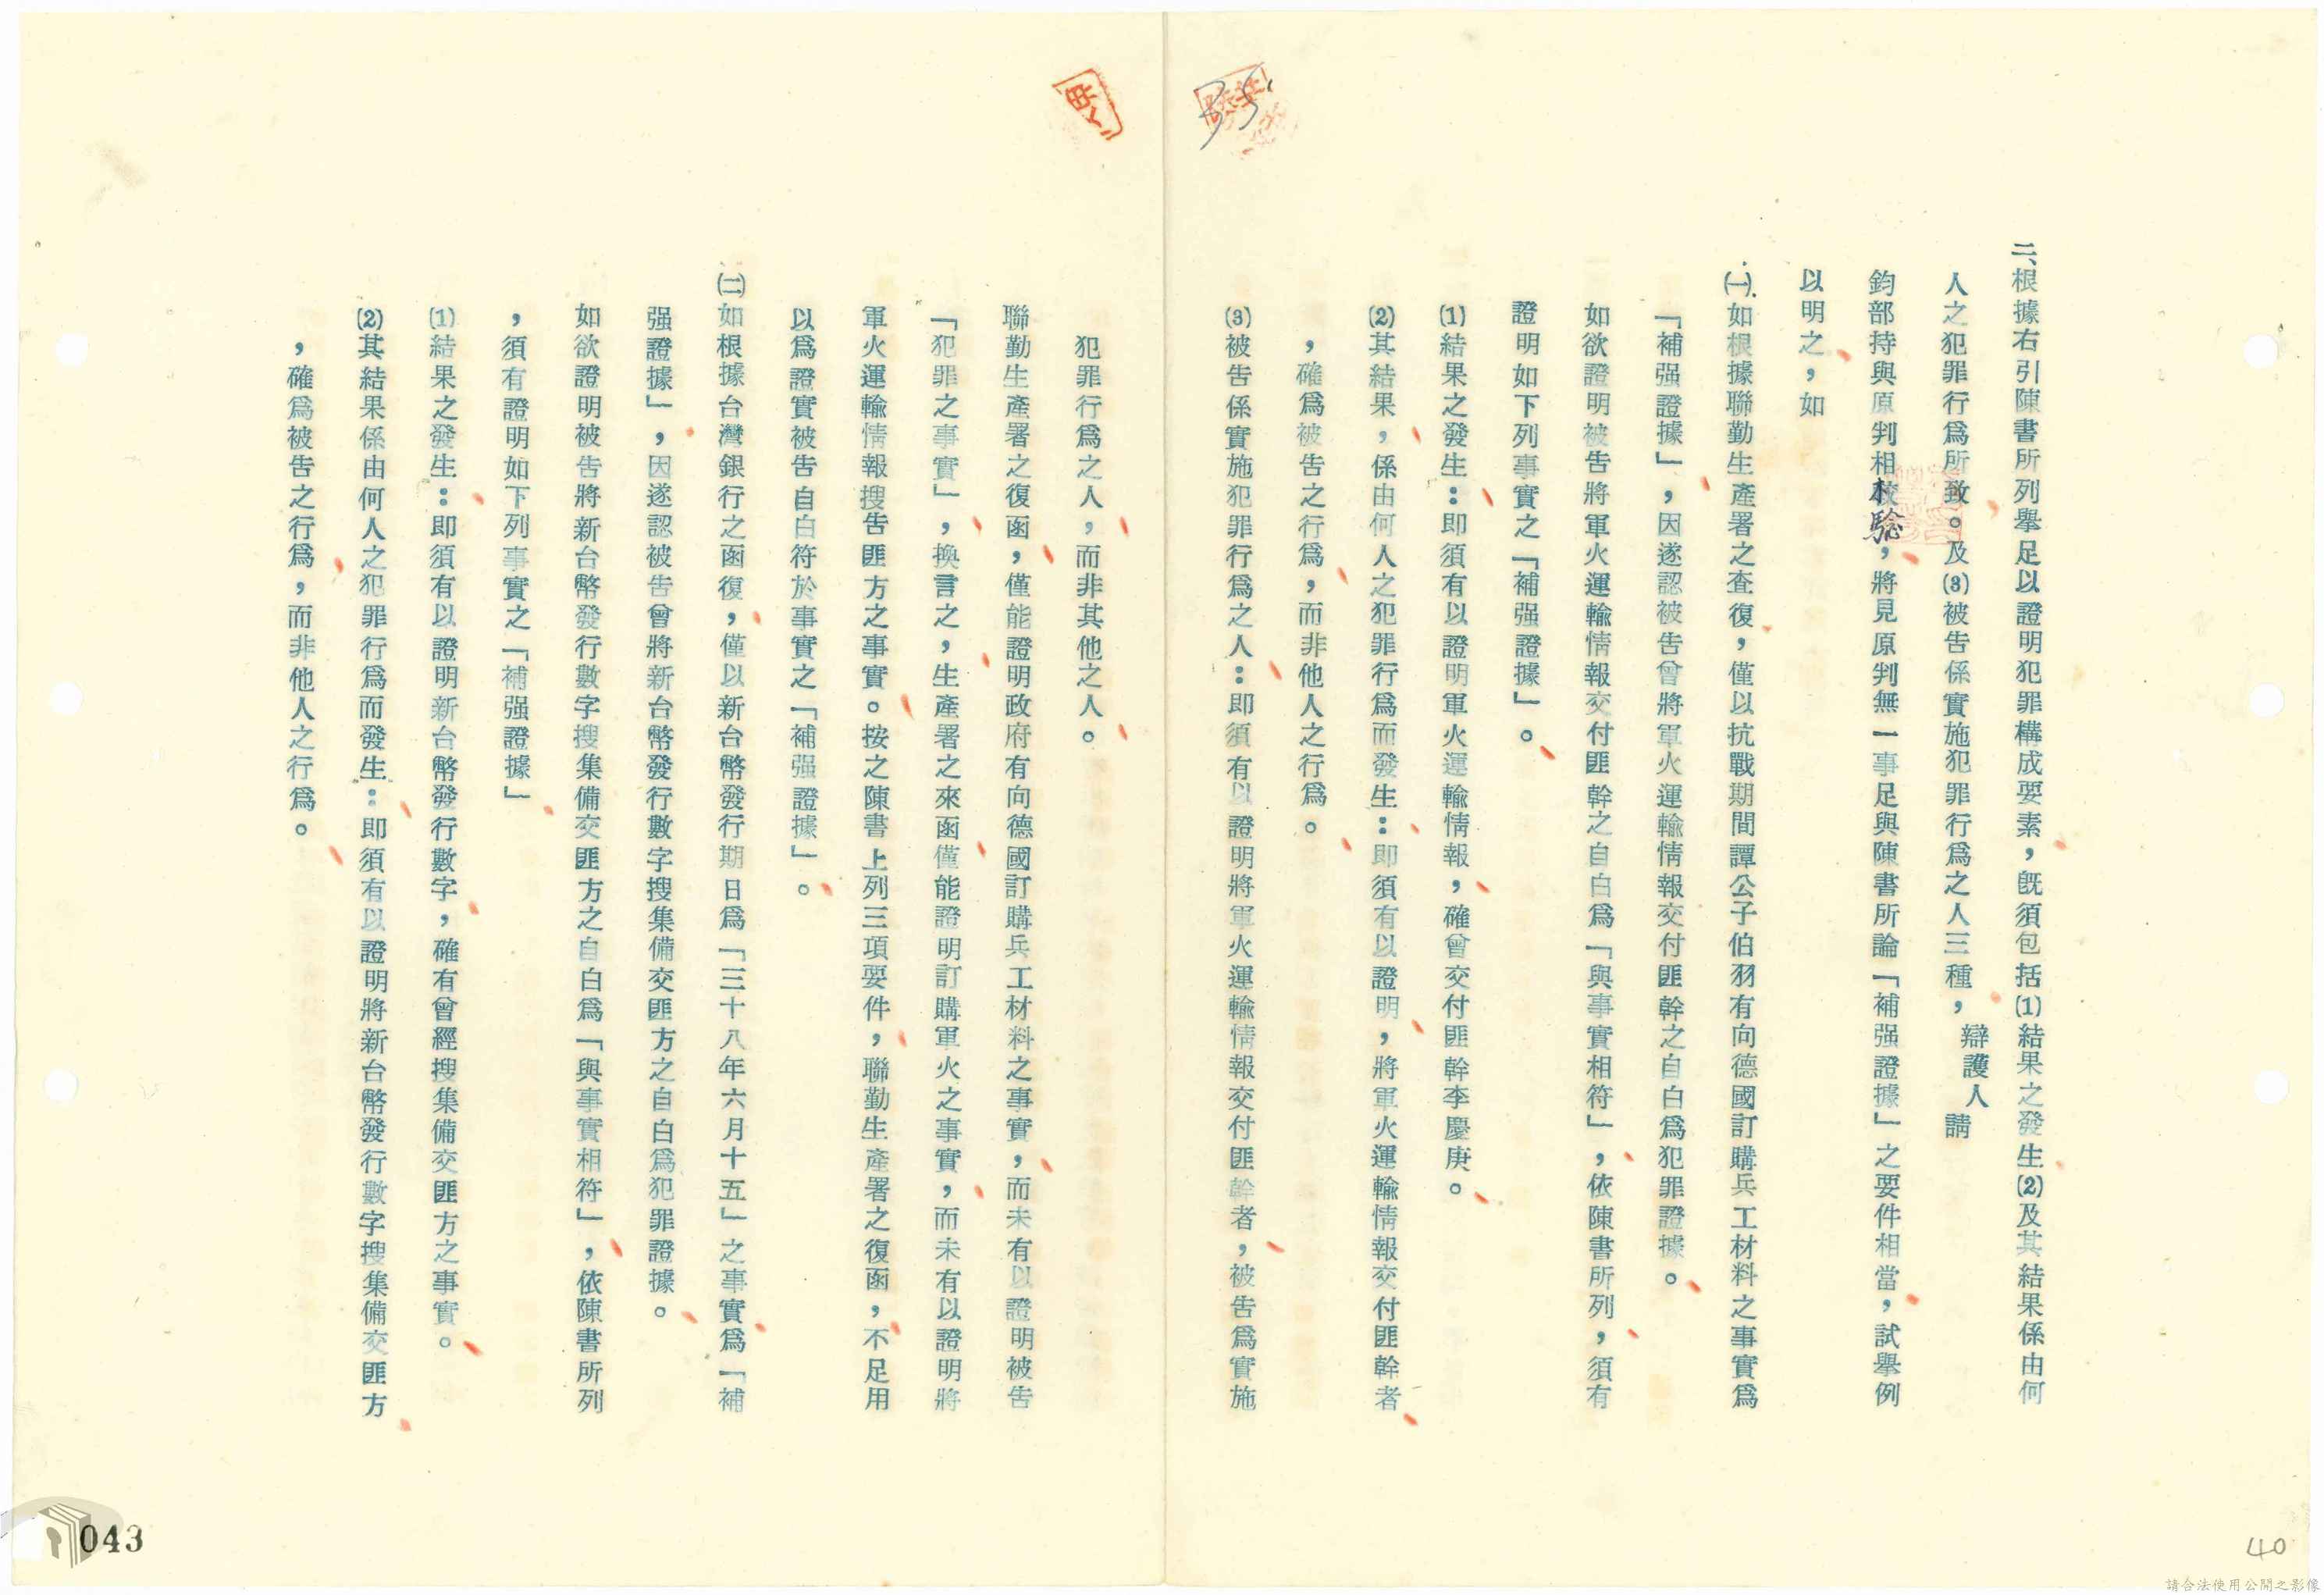 二、根據右引陳書所列舉足以證明犯罪構成要素，既須包括⑴結果之發生⑵及其結果係由何
人之犯罪行爲所致。及⑶被告係實施犯罪行爲之人三種，辯護人請
鈞部持與原判相校驗，將見原判無一事足與陳書所論「補强證據」之要件相當，試舉例
以明之，如
㈠如根據聯勤生產署之查復，僅以抗戰期間譚公子伯羽有向德國訂購兵工材料之事實爲
「補强證據」，因遂認被告曾將軍火運輸情報交付匪幹之自白爲犯罪證據。
如欲證明被告將軍火運輸情報交付匪幹之自白爲「與事實相符」，依陳書所列，須有
證明如下列事實之「補强證據」。
⑴結果之發生：即須有以證明軍火運輸情報，確曾交付匪幹李慶庚。
⑵其結果，係由何人之犯罪行爲而發生：即須有以證明，將軍火運輸情報交付匪幹者
，確爲被告之行爲，而非他人之行爲。
⑶被告係實施犯罪行爲之人：即須有以證明將軍火運輸情報交付匪幹者，被告爲實施
犯罪行爲之人，而非其他之人。
聯勤生產署之復函，僅能證明政府有向德國訂購兵工材料之事實，而未有以證明被告
「犯罪之事實」，換言之，生產署之來函僅能證明訂購軍火之事實，而未有以證明將
軍火運輸情報搜告匪方之事實。按之陳書上列三項要件，聯勤生產署之復函，不足用
以爲證實被告自白符於事實之「補强證據」。
㈡如根據台灣銀行之函復，僅以新台幣發行期日爲「三十八年六月十五」之事實爲「補
强證據」，因遂認被告曾將新台幣發行數字搜集備交匪方之自白爲犯罪證據。
如欲證明被告將新台幣發行數字搜集備交匪方之自白爲「與事實相符」，依陳書所列
，須有證明如下列事實之「補强證據」
⑴結果之發生：即須有以證明新台幣發行數字，確有曾經搜集備交匪方之事實。
⑵其結果係由何人之犯罪行爲而發生：即須有以證明將新台幣發行數字搜集備交匪方
，確爲被告之行爲，而非他人之行爲。
043
40
請合法使用公開之影像